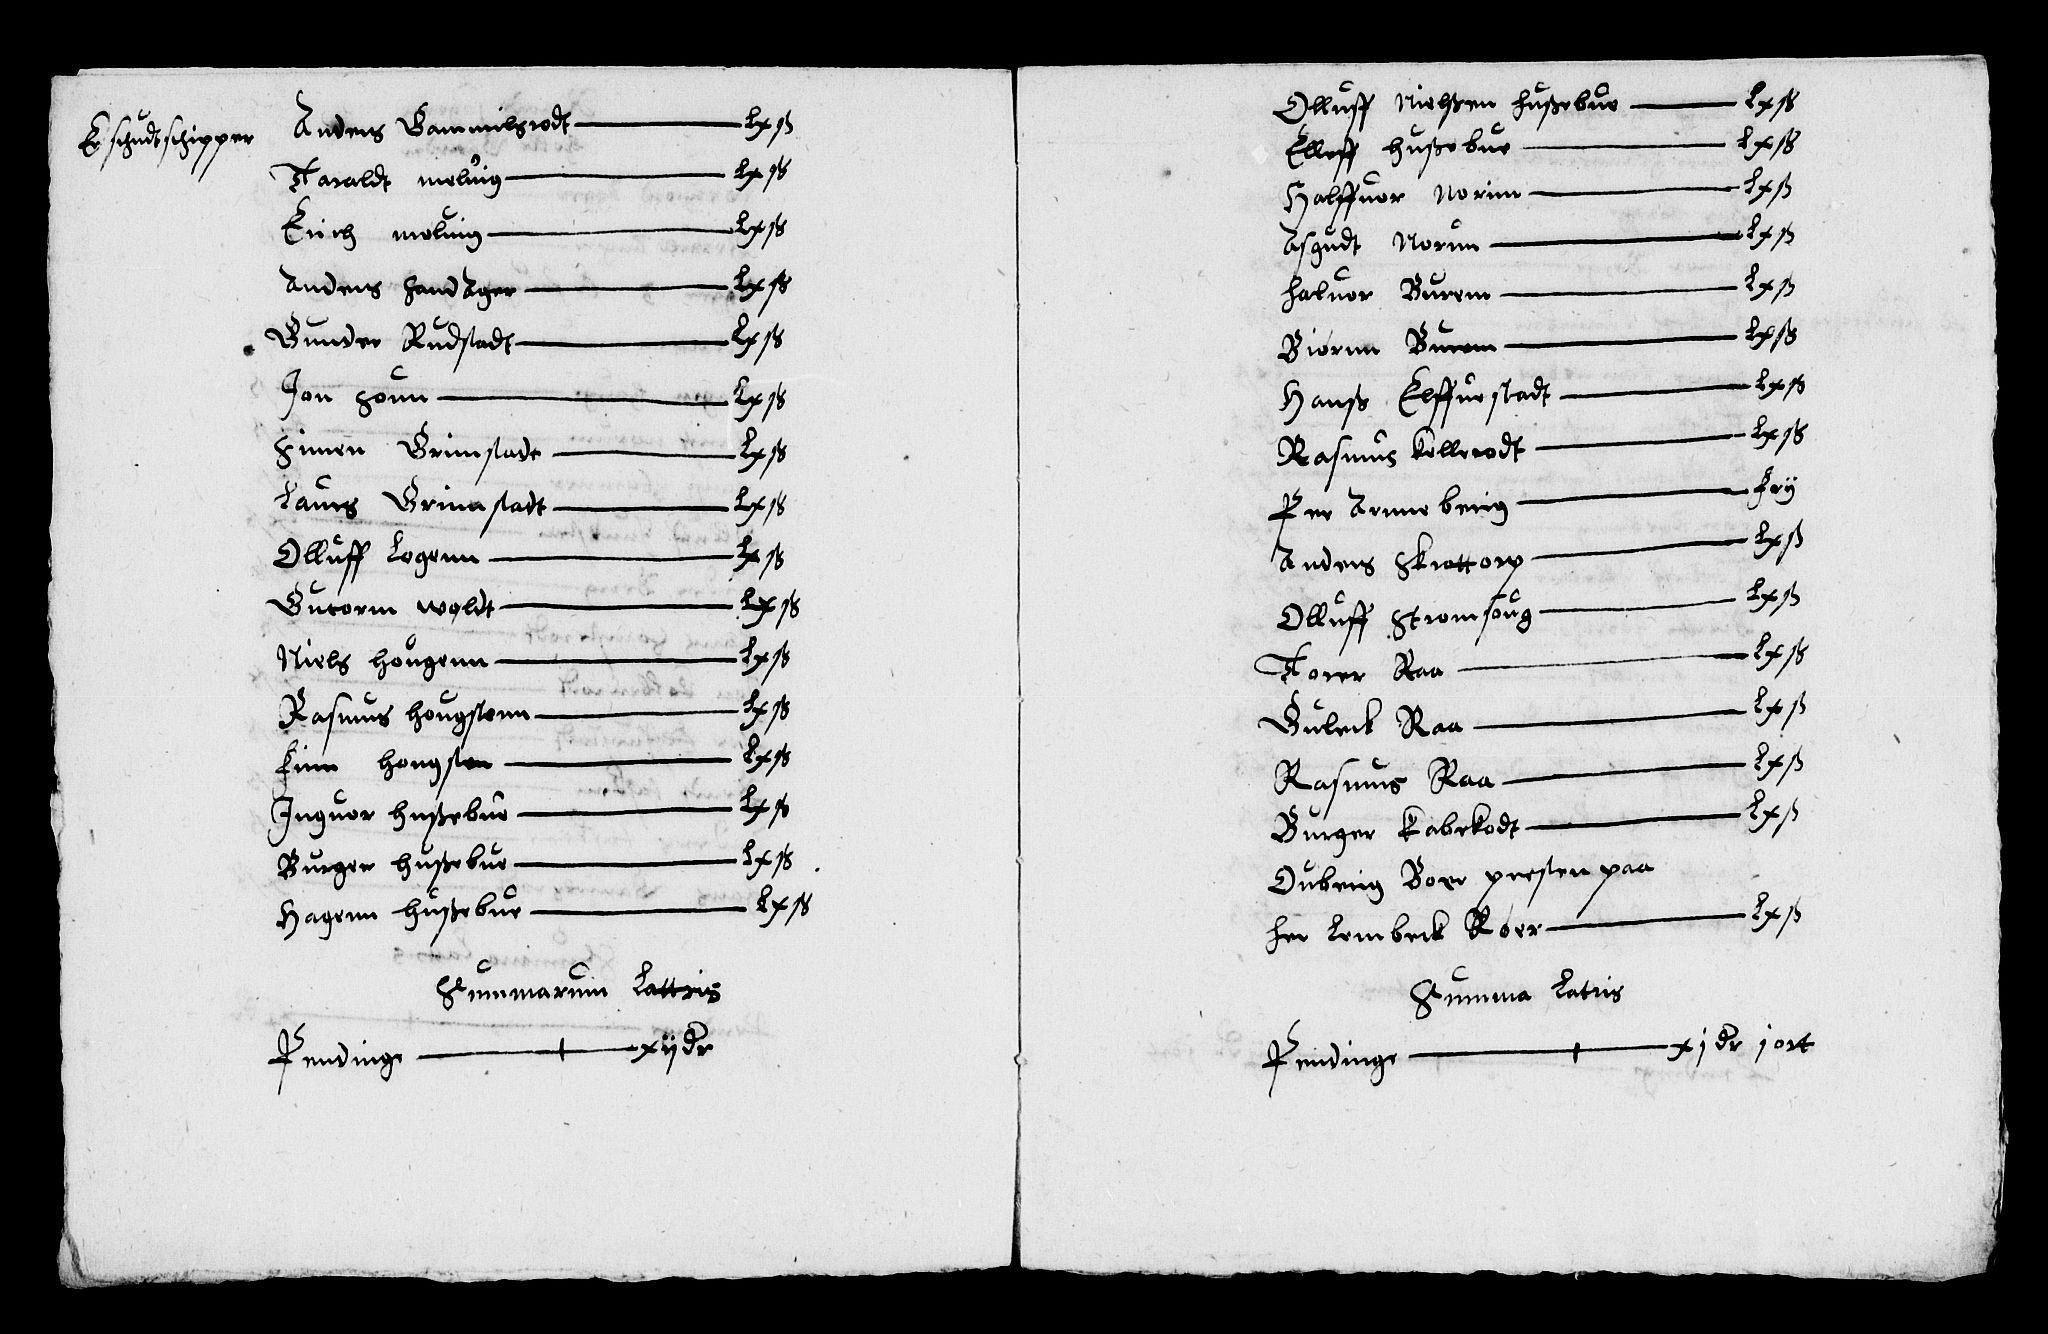 Er schudtschipper
Anders Gammilsrodt — Lxß
Taraldt meluig — Lxß
Erich moluig — Lxß
Anders sandAger — Lxß
Gunder Rudstadt — Lxß
Jon soun — Lxß
Simen Grimstadt — Lxß
Laurs Grimstadt — Lxß
Olluff Logenn — Lxß
Gutorm woldt — Lxß
Niels hougenn — Lxß
Rasmus hougstenn — Lxß
Finn hougsten — Lxß
Inguor hußebue — Lxß
Burger hußebue — Lxß
Hagenn hußebue — Lxß
Summarum Lattris
Pendinge — xijdr
Olluff Nielßen hußebue — Lxß
Elleff hußebue — Lxß
Halffuor Norim — Lxß
Asgudt Norum — Lxß
haluor Burem — Lxß
Biørnn Burem — Lxß
Hanß Elffuestadt — Lxß
Rasmus Kellerodt — Lxß
Per Arnneberig — frij
Anders Skrattorp — Lxß
Olluff Stromsoug — Lxß
Torer Raa — Lxß
Gulleick Raa — Lxß
Rasmus Raa — Lxß
Burger Kabekodt — Lxß
Oubrig Boer presten paa
her Lembeck Roer — Lxß
Summa Latris
Pendinge — xj dr j ort